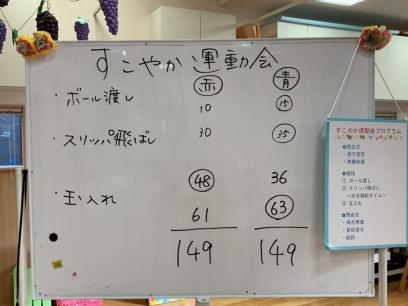 すこやか運動会
赤 青
・ボール渡し
10 15
・スリッパ飛ばし
30 35
48 36
・玉入れ
61 63
149 149
すこやか運動会プログラム
●開会式
・選手宣誓
・準備体操
●競技
① ボール渡し
② スリッパ飛ばし
～水分補給タイム～
③ 玉入れ
●閉会式
・得点発表
・賞状授与
・総評